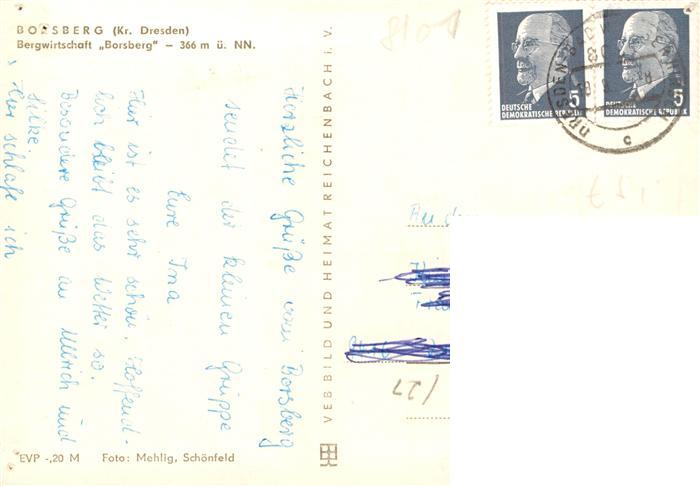 BORSBERG (Kr. Dresden)
Bergwirtschaft „Borsberg" – 366 m ü. NN.
Herzliche Grüße vom Borsberg
sendet der kleinen Gruppe
Eure Ina
Hier ist es sehr schön. Hoffent-
lich bleibt das Wetter so.
Besondere Grüße an Ullrich und
Silke.
Hier schlafe ich
EVP -,20 M Foto: Mehlig, Schönfeld
VEB BILD UND HEIMAT REICHENBACH i. V.
5
DEUTSCHE
DEMOKRATISCHE REPUBLIK
5
DEUTSCHE
DEMOKRATISCHE REPUBLIK
DRESDEN
c
An